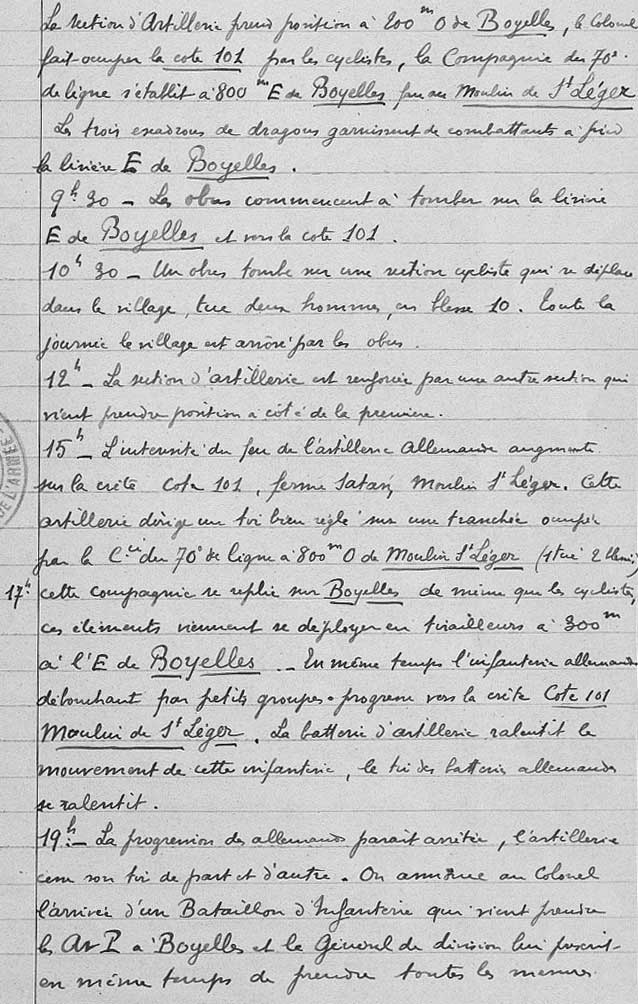 La section d'Artillerie prend position à 200m O de Boyelles, le Colonel
fait occuper la cote 101 par les cyclistes, la Compagnie du 70e
de ligne s'établit à 800m E de Boyelles face au Moulin de St Léger
Les trois escadrons de dragons garnissent de combattants à pied
la lisière E de Boyelles.
9h 30 - Les obus commencent à tomber sur la lisière
E de Boyelles et vers la cote 101.
10h 30 - Un obus tombe sur une section cycliste qui se déplace
dans le village, tue deux hommes, en blesse 10. Toute la
journée le village est arrosé par les obus.
12h - La section d'artillerie est renforcée par une autre section qui
vient prendre position à côté de la première.
15h - L'intensité du feu de l'artillerie Allemande augmente
sur la crête Cote 101, ferme Satan, Moulin St Léger. Cette
artillerie dirige un tir bien réglé sur une tranchée occupée
par la Cie du 70e de ligne à 800m O de Moulin St Léger (1 tué 2 blessés)
17h cette compagnie se replie sur Boyelles de même que les cyclistes,
ces éléments viennent se déployer en tirailleurs à 300m
à l'E de Boyelles - En même temps l'infanterie allemande
débouchant par petits groupes progresse vers la crête Cote 101
Moulin de St Léger. La batterie d'artillerie ralentit le
mouvement de cette infanterie, le tir des batteries allemandes
se ralentit.
19h - La progression des allemands parait arrêtée, l'artillerie
cesse son tir de part et d'autre. On annonce au Colonel
l'arrivée d'un Bataillon d'Infanterie qui vient prendre
les Av P à Boyelles et le Général de division lui prescrit
en même temps de prendre toutes les mesures
DE L'ARMÉE